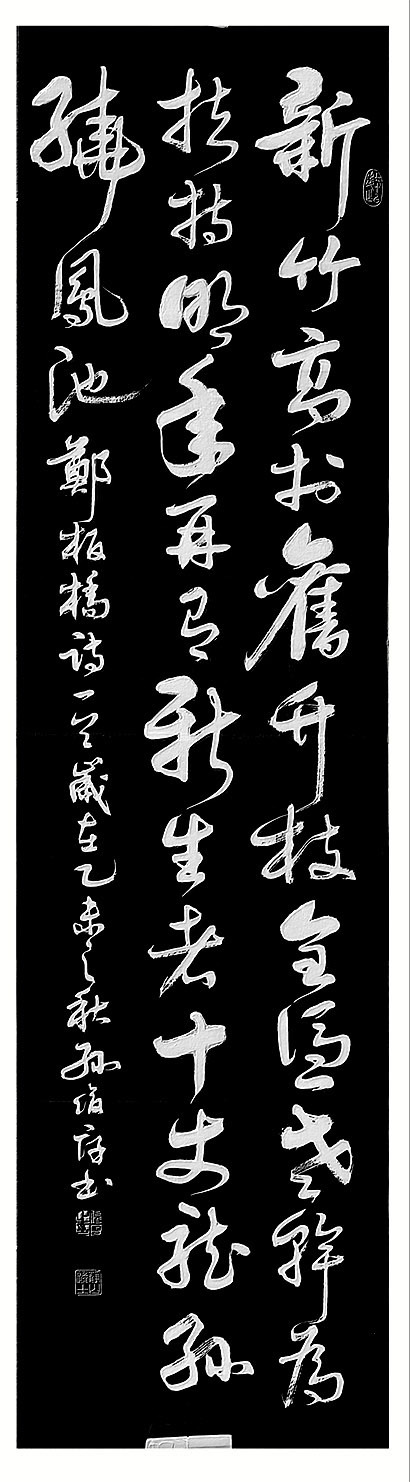 新竹高於舊竹枝全憑老幹為
扶持明年再有新生者十丈龍孫
繞鳳池 鄭板橋詩一首歲在乙未之秋孫書